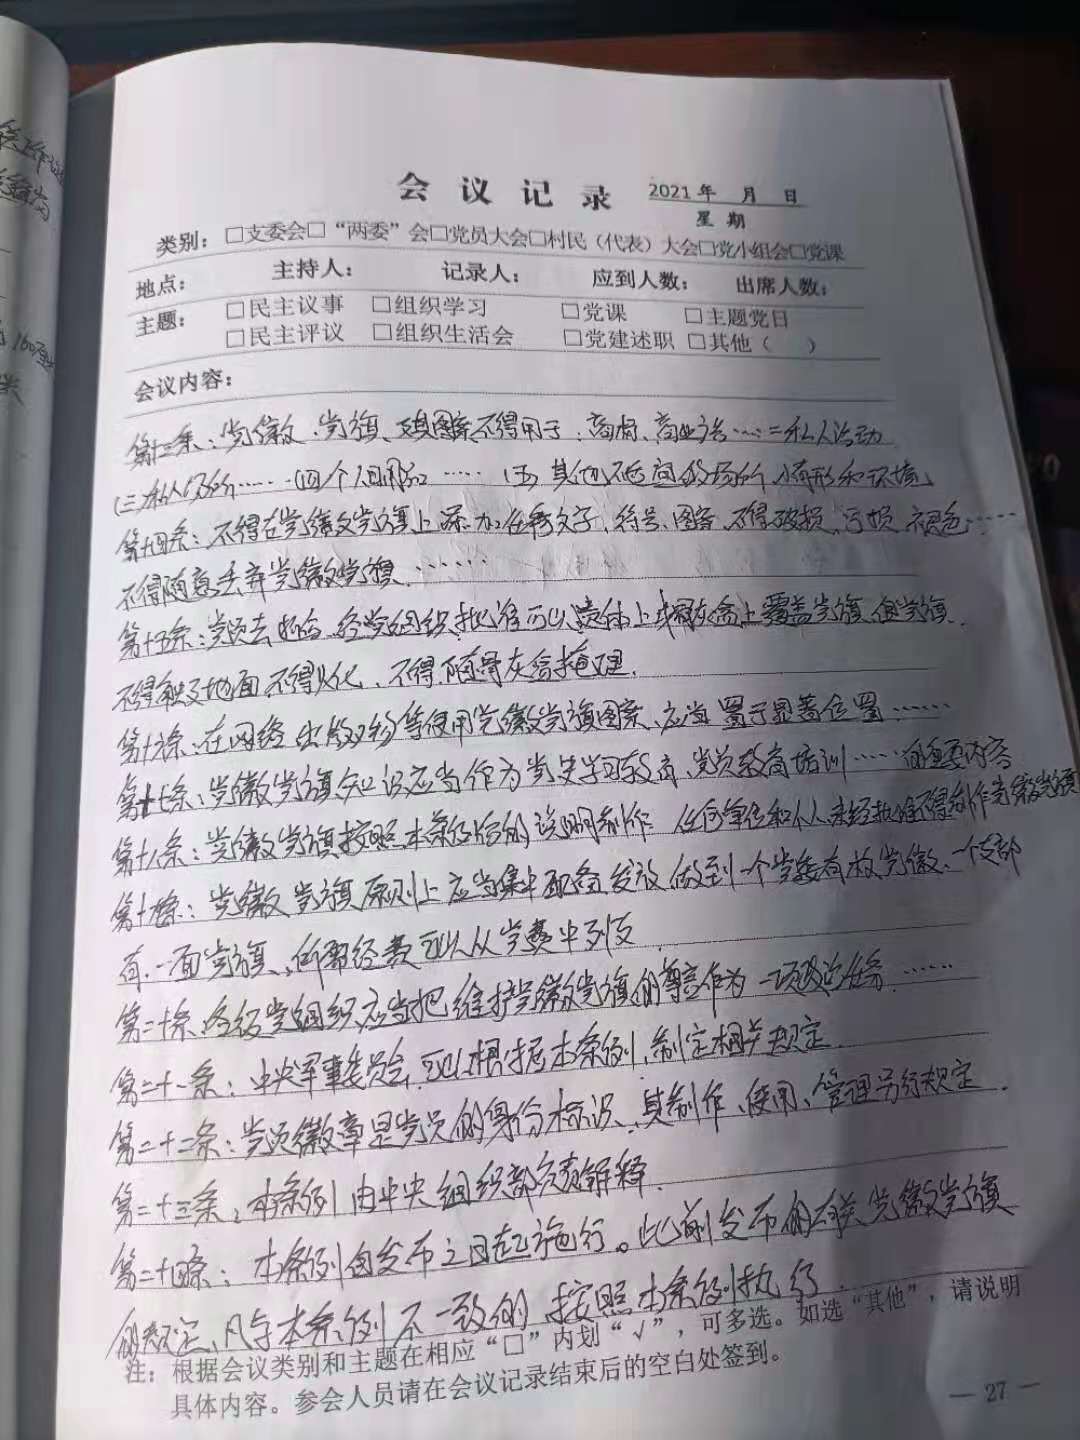 会议记录 2021年 月 日
星 期
类别：□支委会□“两委”会□党员大会□村民（代表）大会□党小组会□党课
地点： 主持人： 记录人： 应到人数： 出席人数：
主题： □民主议事 □组织学习 □党课 □主题党日
□民主评议 □组织生活会 □党建述职 □其他（ ）
会议内容：
第十三条：党徽、党旗、及其图案不得用于：商标、商业广告……二私人活动
(三)私人场所……(四)个人日用品……(五)其他不适宜的场所、情形和环境
第十四条：不得在党徽党旗上添加任何文字、符号、图案、不得破损、污损、褪色……
不得随意丢弃党徽党旗……
第十五条：党员去世后、经党组织批准可以遗体上或骨灰盒上覆盖党旗、但党旗
不得触及地面、不得火化、不得随骨灰盒掩埋.
第十六条：在网络出版物等使用党徽党旗图案、应当置于显著位置……
第十七条：党徽党旗知识应当作为党史学习教育、党员教育培训……的重要内容
第十八条：党徽党旗按照本条例后的说明制作 任何单位和个人未经批准不得制作党徽党旗
第十九条：党徽党旗原则上应当集中配备发放 做到一个党员有一枚党徽、一个支部
有一面党旗、所需经费可以从党费中列支.
第二十条：各级党组织应当把维护党徽党旗的尊严作为一项政治任务……
第二十一条：中央军事委员会可以根据本条例、制定相关规定.
第二十二条：党员徽章是党员的身份标识、其制作、使用、管理另行规定.
第二十三条：本条例由中央组织部负责解释.
第二十四条：本条例自发布之日起施行。此前发布的有关党徽党旗
的规定、凡与本条例不一致的 按照本条例执行
注：根据会议类别和主题在相应“□”内划“√”，可多选。如选“其他”，请说明
具体内容。参会人员请在会议记录结束后的空白处签到。
— 27 —